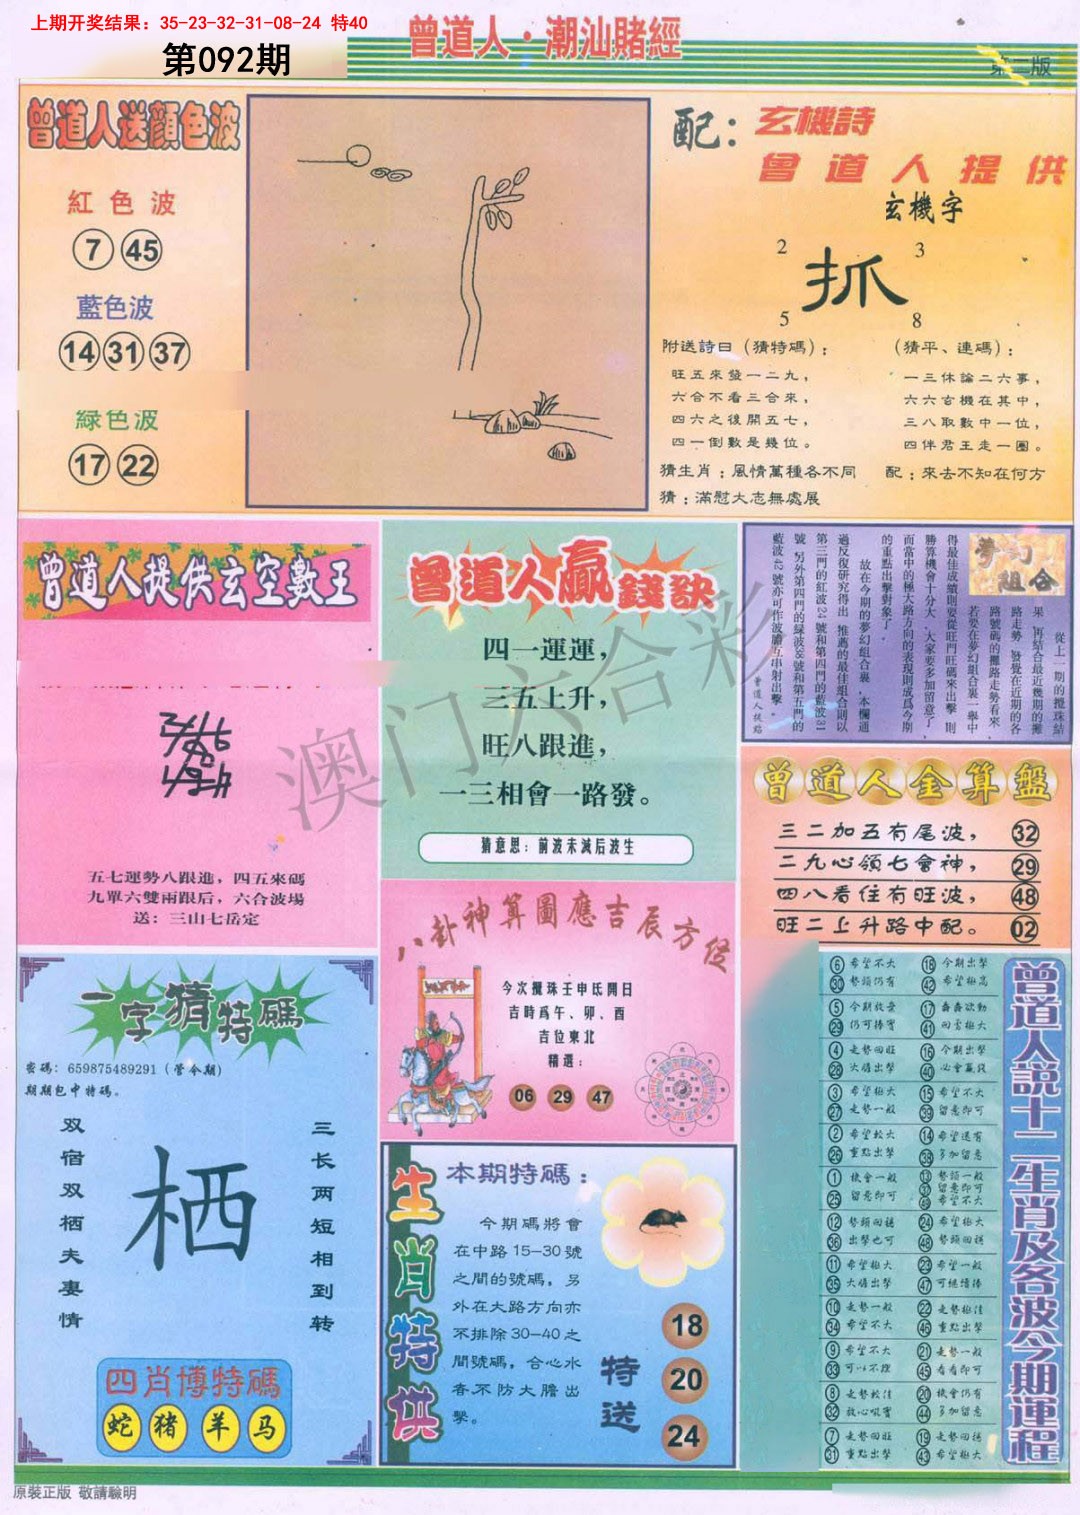 上期开奖结果：35-23-32-31-08-24 特40
第092期
曾道人·潮汕賭經
第二版
曾道人送顏色波
紅色波
7 45
藍色波
14 31 37
緑色波
17 22
配：玄機詩
曾道人提供
玄機字
2 3
抓
5 8
附送詩曰（猜特碼）：
旺五來發一二九，
六合不看三合來，
四六之後開五七，
四一倒數是幾位。
（猜平、連碼）：
一三休論二六事，
六六玄機在其中，
三八取數中一位，
四伴君王走一圈。
猜生肖：風情萬種各不同
配：來去不知在何方
猜：滿慰大志無處展
曾道人提供玄空數王
五七運勢八跟進，四五來碼
九單六雙兩跟后，六合波場
送：三山七岳定
曾道人贏錢訣
四一運運，
三五上升，
旺八跟進，
一三相會一路發。
猜意思：前波未滅后波生
夢幻組合
從上一期的攪珠結
果，再結合最近幾期的攤
路走勢，發覺在近期的各
路號碼的攤路走勢看來，
若要在夢幻組合裏一舉中
得最佳成績則要從旺門旺碼來出擊，則
勝算機會十分大，大家要多加留意了，
而當中的極大路方向的表現則成爲今期
的重點出擊對象了。
故在今期的夢幻組合裏，本欄通
過反復研究得出，推薦的最佳組合則以
第三門的紅波24號和第四門的藍波31
號，另外第四門的緑波38號和第五門的
藍波42號亦可作波膽互串射出擊。
曾道人提點
澳门六合彩
曾道人金算盤
三二加五有尾波， 32
二九心領七會神， 29
四八看住有旺波， 48
旺二上升路中配。 02
八卦神算圖應吉辰方從
今次攪珠壬申氐開日
吉時爲午、卯、酉
吉位東北
精選：
06 29 47
一字猜特碼
密碼：659875489291（管令期）
期期包中特碼。
双宿双栖夫妻情
栖
三长两短相到转
四肖博特碼
蛇 猪 羊 马
生肖特供
本期特碼：
今期碼將會
在中路15-30號
之間的號碼，另
外在大路方向亦
不排除30-40之
間號碼，合心水
者不防大膽出
擊。
特送
18
20
24
曾道人説十二生肖及各波今期運程
6 希望不大
30 勢頭仍有
18 今期出擊
42 希望極高
5 今期收宴
29 仍可博實
17 蠢蠢欲動
41 回雪極大
4 走勢回旺
28 大循出擊
16 今期出擊
40 必會贏錢
3 希望極大
27 走勢一般
15 希望不大
39 留意即可
2 希望較大
26 重點出擊
14 希望還有
38 多加留意
1 機會一般
25 留意即可
13 勢頭一般
37 留意即可
49 希望不大
12 勢頭回穩
36 出擊也可
24 希望極大
48 勢頭回穩
11 希望極大
35 大循出擊
23 希望一般
47 可繼續捧
10 走勢一般
34 希望不大
22 走勢極佳
46 重點出擊
9 希望不大
33 可以不理
21 走勢一般
45 看看即可
8 走勢較佳
32 放心吼實
20 機會仍有
44 多加留意
7 走勢回旺
31 重點出擊
19 走勢回穩
43 希望極大
原裝正版 敬請驗明